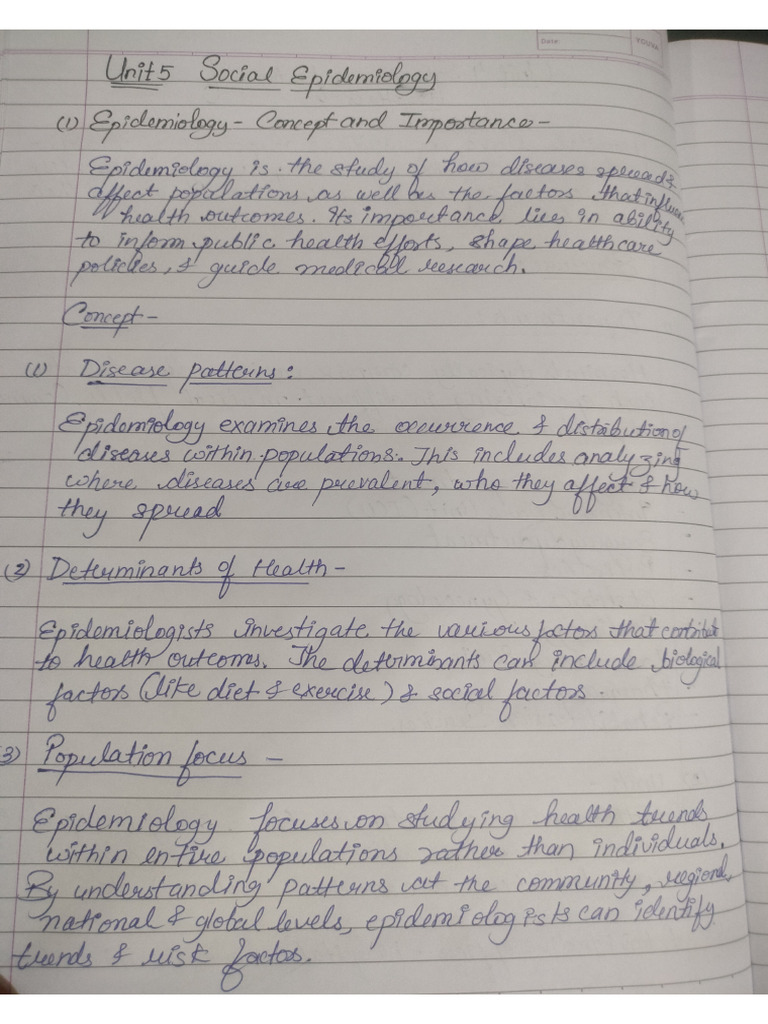 Date
YOUVA
Unit 5 Social Epidemiology
(1) Epidemiology - Concept and Importance -
Epidemiology is the study of how diseases spread &
affect populations as well as the factors that influen
health outcomes. Its importance lies in ability
to inform public health efforts, shape healthcare
policies, & guide medical research.
Concept -
(1) Disease patterns :
Epidemiology examines the occurrence & distribution of
diseases within populations. This includes analyzing
where diseases are prevalent, who they affect & how
they spread
(2) Determinants of Health -
Epidemiologists investigate the various factors that contribut
to health outcomes. The determinants can include biological
factors (like diet & exercise) & social factors.
3) Population focus -
Epidemiology focuses on studying health trends
within entire populations rather than individuals.
By understanding patterns at the community, regional,
national & global levels, epidemiologists can identify
trends & risk factors.